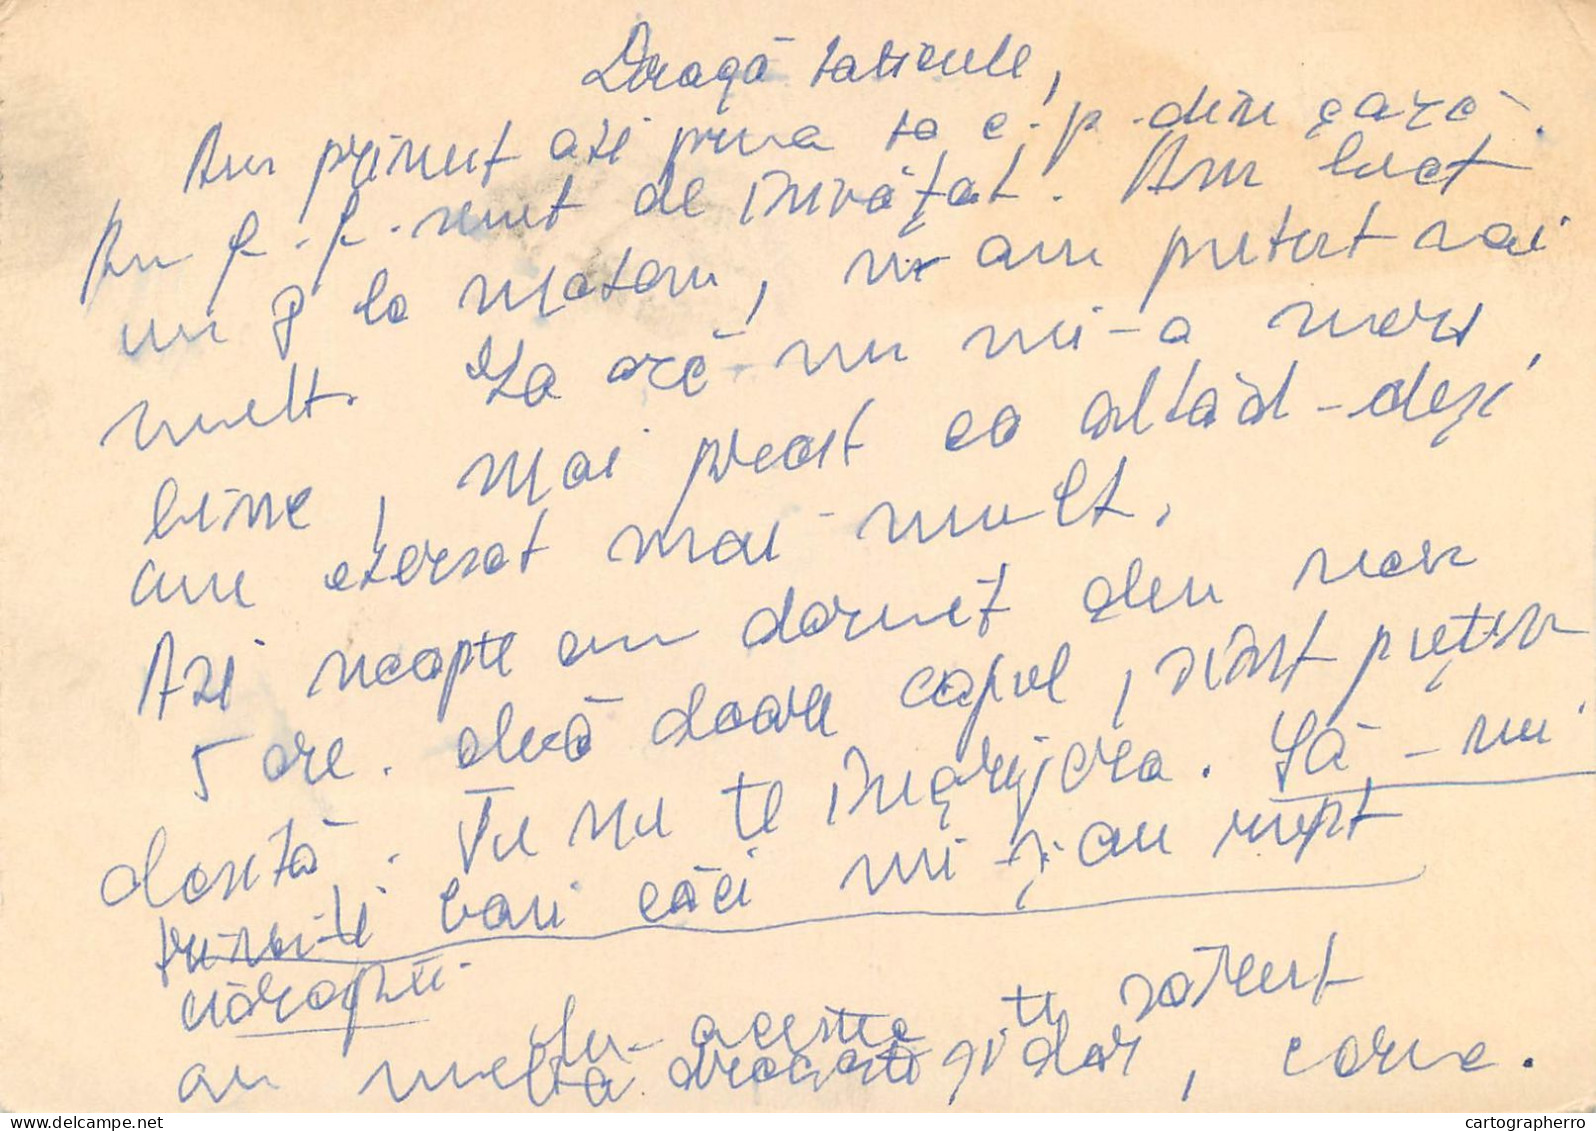 Dragă tăticule,
Am primit azi prima ta c.p. din gară.
Am f. f. mult de învăţat. Am luat
un 8 la matem, n-am putut mai
mult. La oră nu mi-a mers
bine, mai prost ca altăd-deşi
am exersat mai mult.
Azi noapte am dormit
5 ore. doare capul, sînt puţin
. Tu nu te îngrijora. Să-mi
trimiţi bani căci mi s-au rupt
ciorapii.
Cu aceste te sărut
cu multă dragoste şi dor,
cartographerro